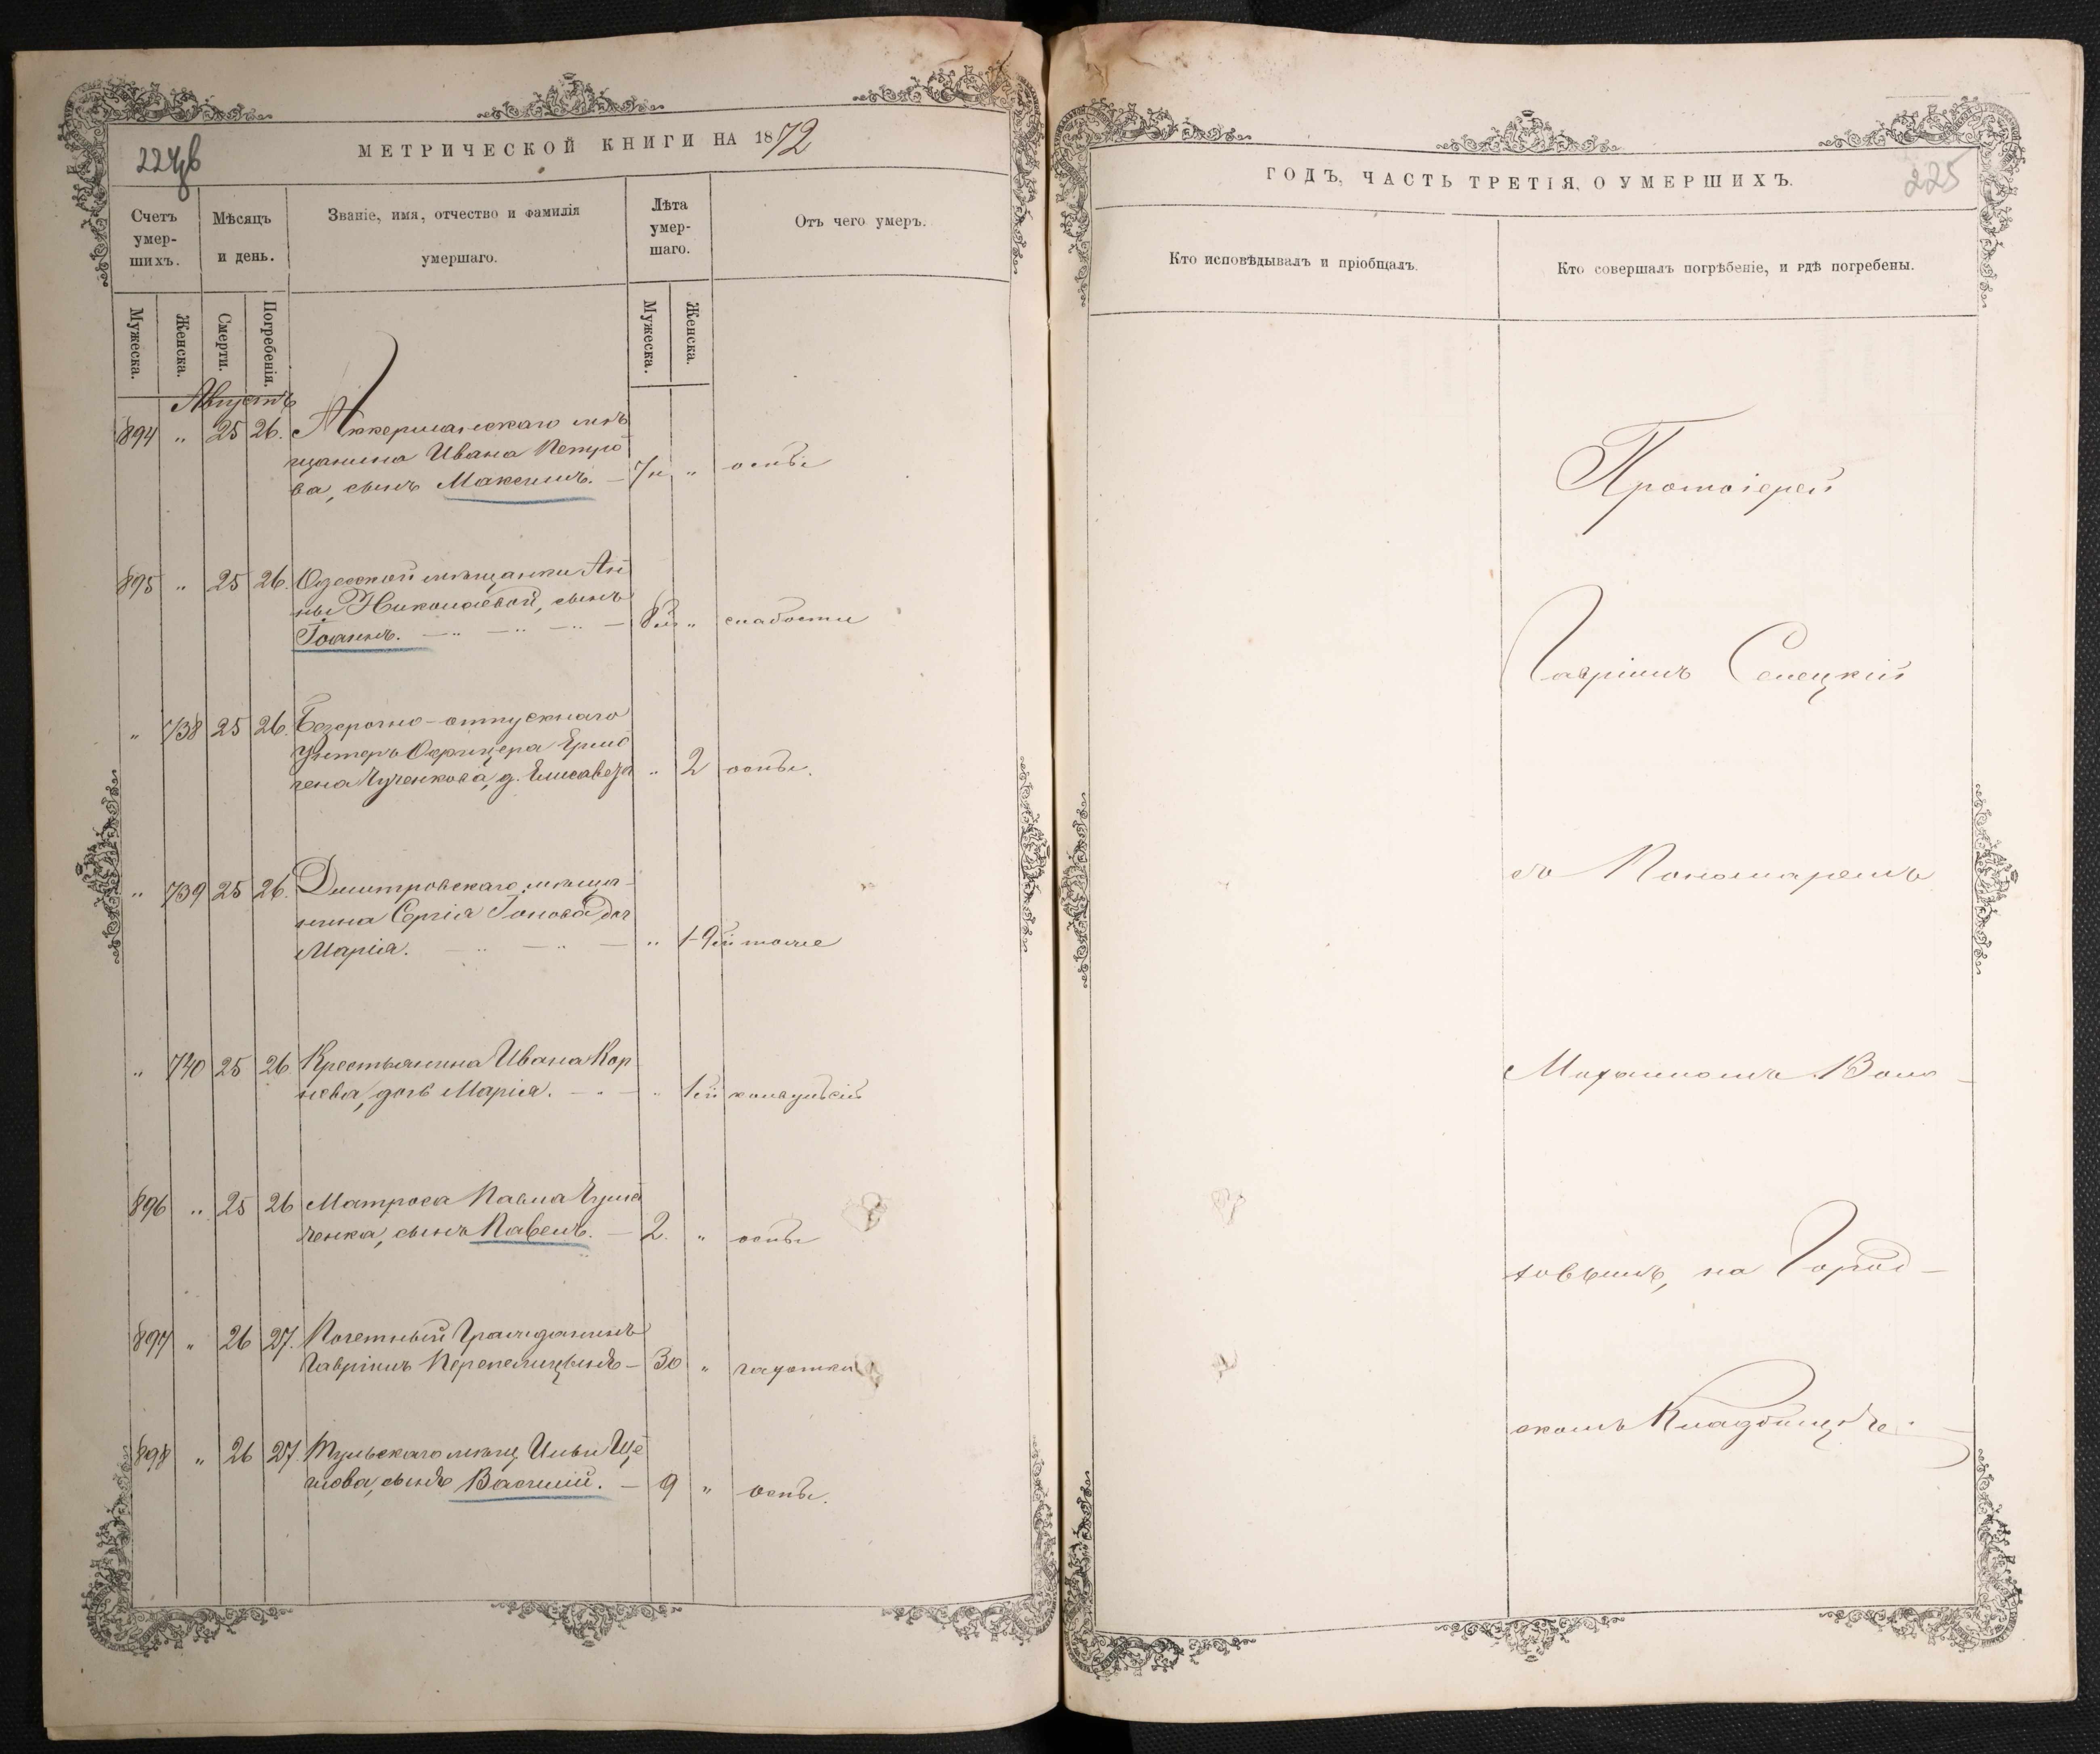 224об
МЕТРИЧЕСКОЙ КНИГИ НА 1872
Счетъ умер-шихъ.
Мѣсяцъ и день.
Званіе, имя, отчество и фамилія умершаго.
Лѣта умер-шаго.
Отъ чего умеръ.
Мужеска.
Женска.
Смерти.
Погребенія.
Мужеска.
Женска.
Августъ
894 " 25 26. Аккерманскаго мѣ
щанина Ивана Петро
ва, сынъ Максимъ. — 7н. " оспы
895 " 25 26. Одесской мѣщанки Ан
ны Николаевой, сынъ
Іоаннъ. — " — " — " — 8м " слабости
" 738 25 26. Безсрочно-отпускнаго
Унтеръ Офицера Ермо
гена Чученкова, д. Елисавета " 2 оспы.
" 739 25 26. Дмитровскаго мѣща-
нина Сергія Іонова доч
Марія. — " — " — " 1-9м тоже
" 740 25 26 Крестьянина Ивана Кор
нева, дочь Марія. — " — " 1м конвульсій
896 " 25 26 Матроса Павла
ченка, сынъ Павелъ. — 2. " оспы
897 " 26 27. Почетный Гражданинъ
Гавріилъ Перепелицынъ — 30 " чахотки
898 " 26 27. Тульскаго мѣщ. Ильи Ще
глова, сынъ Василій. — 9 " оспы.
ГОДЪ, ЧАСТЬ ТРЕТІЯ, О УМЕРШИХЪ.
225
Кто исповѣдывалъ и пріобщалъ.
Кто совершалъ погрѣбеніе, и гдѣ погребены.
Протоіерей
Гавріилъ Селецкій
съ Пономаремъ
Михаиломъ Воло-
товымъ, на Город-
скомъ Кладбищѣ.